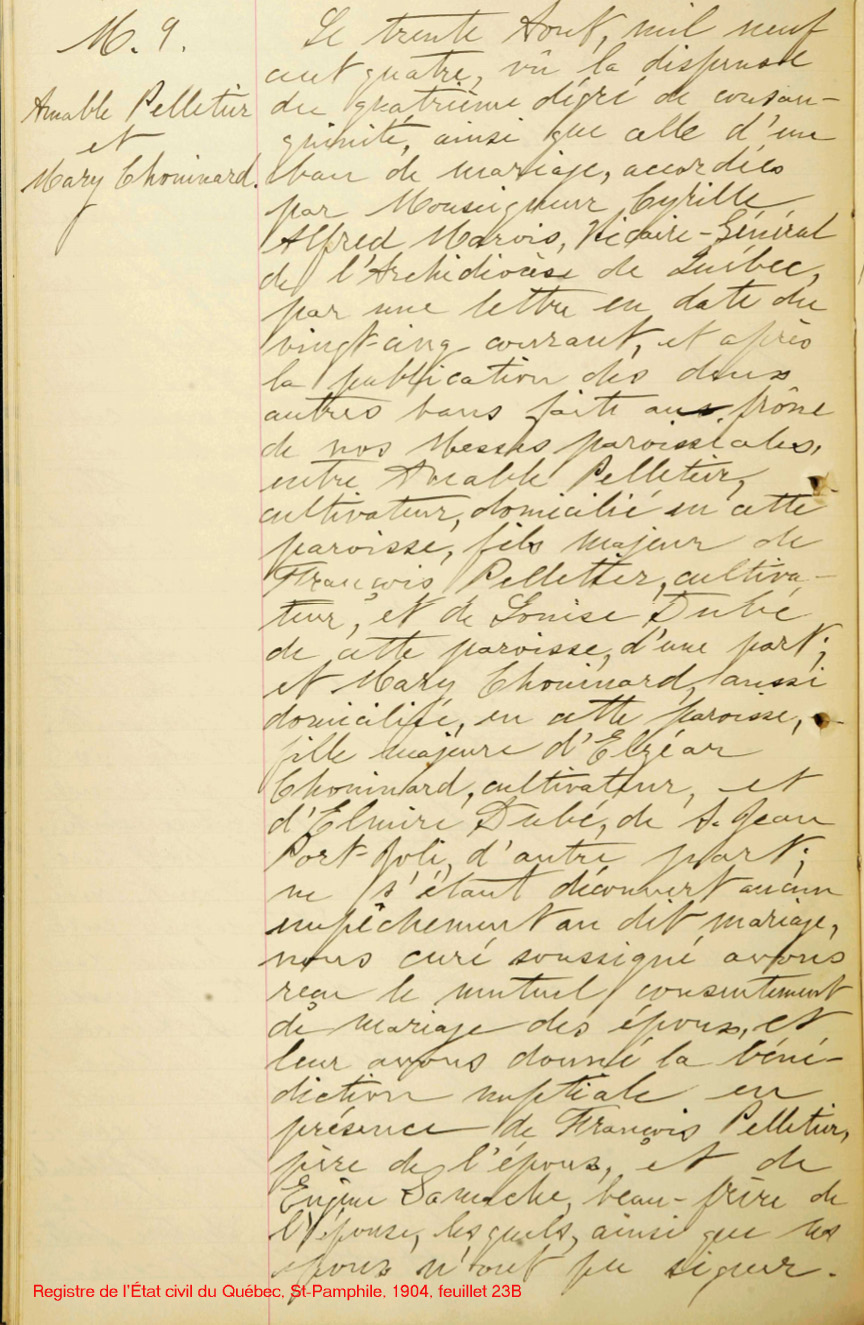 M. 9.
Amable Pelletier
et
Mary Chouinard.
Le trente Aout, mil neuf
cent quatre, vû la dispense
du quatrième dégré de consan-
guinité, ainsi que celle d'un
ban de mariage, accordées
par Monseigneur Cyrille
Alfred Marois, Vicaire-Général
de l'Archidiocèse de Québec,
par une lettre en date du
vingt-cinq courant, et après
la publication des deux
autres bans faite aux prône
de nos Messes paroissiales,
entre Amable Pelletier,
cultivateur, domicilié en cette
paroisse, fils majeur de
François Pelletier, cultiva-
teur, et de Louise Dubé
de cette paroisse, d'une part;
et Mary Chouinard, aussi
domiciliée, en cette paroisse,
fille majeure d'Elzéar
Chouinard, cultivateur, et
d'Elmire Dubé, de S. Jean
Port-Joli, d'autre part;
ne s'étant découvert aucun
empêchement au dit mariage,
nous curé soussigné avons
reçu le mutuel consentement
de mariage des époux, et
leur avons donné la béné-
diction nuptiale en
présence de François Pelletier,
père de l'époux, et de
Eugène beau-frère de
l'épouse, lesquels, ainsi que les
époux n'ont pu signer.
Registre de l'État civil du Québec, St-Pamphile, 1904, feuillet 23B